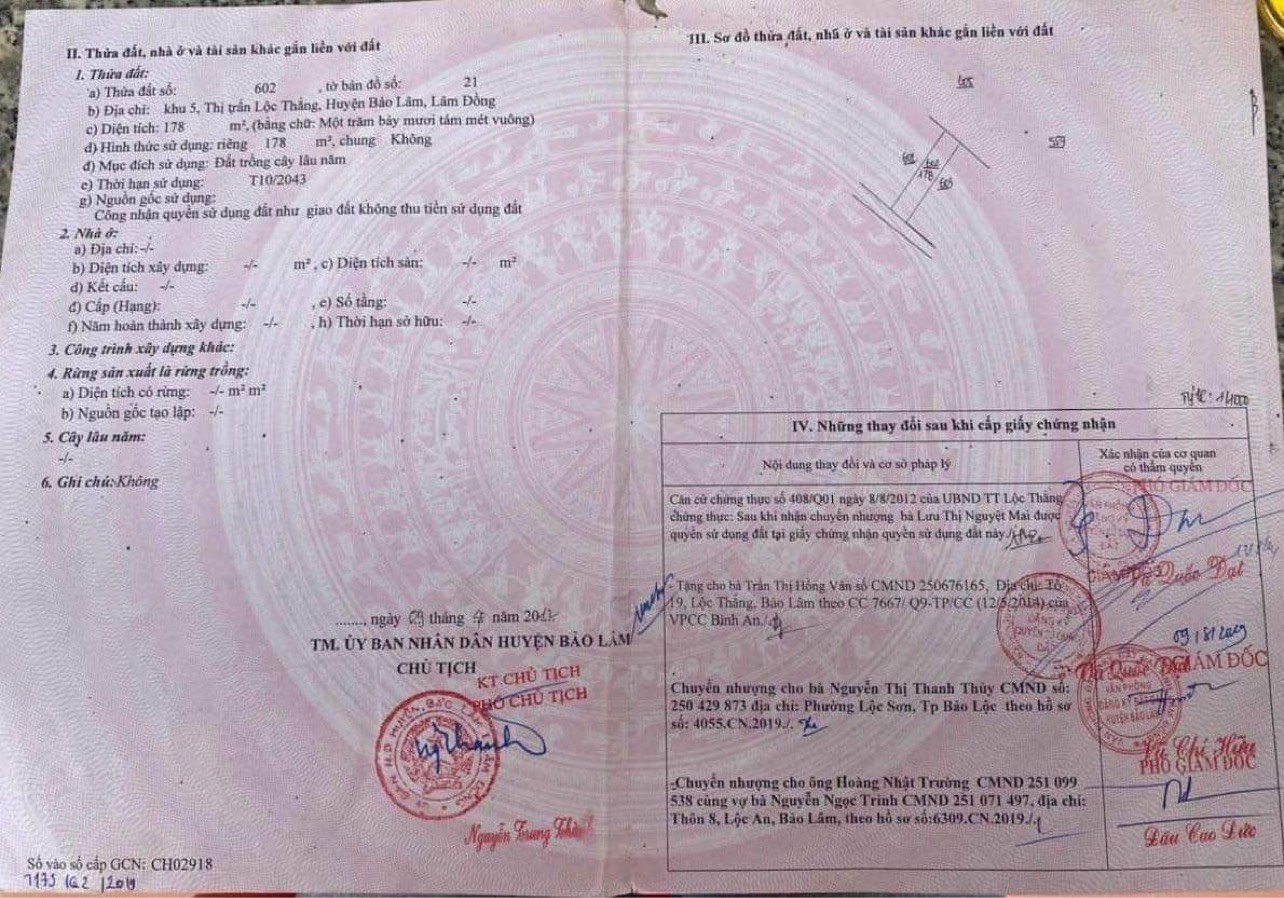 II. Thửa đất, nhà ở và tài sản khác gắn liền với đất
1. Thửa đất:
a) Thửa đất số: 602 , tờ bản đồ số: 21
b) Địa chỉ: khu 5, Thị trấn Lộc Thắng, Huyện Bảo Lâm, Lâm Đồng
c) Diện tích: 178 m², (bằng chữ: Một trăm bảy mươi tám mét vuông)
d) Hình thức sử dụng: riêng 178 m², chung Không
đ) Mục đích sử dụng: Đất trồng cây lâu năm
e) Thời hạn sử dụng: T10/2043
g) Nguồn gốc sử dụng:
Công nhận quyền sử dụng đất như giao đất không thu tiền sử dụng đất
2. Nhà ở:
a) Địa chỉ: -/-
b) Diện tích xây dựng: -/- m² , c) Diện tích sàn: -/- m²
d) Kết cấu: -/-
đ) Cấp (Hạng): -/- , e) Số tầng: -/-
f) Năm hoàn thành xây dựng: -/- , h) Thời hạn sở hữu: -/-
3. Công trình xây dựng khác:
4. Rừng sản xuất là rừng trồng:
a) Diện tích có rừng: -/- m² m²
b) Nguồn gốc tạo lập: -/-
5. Cây lâu năm:
-/-
6. Ghi chú: Không
......., ngày 09 tháng 4 năm
TM. ỦY BAN NHÂN DÂN HUYỆN BẢO LÂM
CHỦ TỊCH
KT. CHỦ TỊCH
PHÓ CHỦ TỊCH
Nguyễn Trung
Số vào sổ cấp GCN: CH02918
III. Sơ đồ thửa đất, nhà ở và tài sản khác gắn liền với đất
559
602
178
603
IV. Những thay đổi sau khi cấp giấy chứng nhận
Nội dung thay đổi và cơ sở pháp lý
Xác nhận của cơ quan
có thẩm quyền
PHÓ GIÁM ĐỐC
Căn cứ chứng thực số 408/Q01 ngày 8/8/2012 của UBND TT Lộc Thắng
chứng thực: Sau khi nhận chuyển nhượng bà Lưu Thị Nguyệt Mai được
quyền sử dụng đất tại giấy chứng nhận quyền sử dụng đất này
Quốc Đạt
Tặng cho bà Trần Thị Hồng Vân số CMND 250676165, Địa chỉ: Tổ
19, Lộc Thắng, Bảo Lâm theo CC 7667/ Q9-TP/CC (12/5/2014) của
VPCC Bình An./.
09/8/2019
GIÁM ĐỐC
Chuyển nhượng cho bà Nguyễn Thị Thanh Thủy CMND số:
250 429 873 địa chỉ: Phường Lộc Sơn, Tp Bảo Lộc theo hồ sơ
số: 4055.CN.2019./.
PHÓ GIÁM ĐỐC
-Chuyển nhượng cho ông Hoàng Nhật Trường CMND 251 099
538 cùng vợ bà Nguyễn Ngọc Trinh CMND 251 071 497, địa chỉ:
Thôn 8, Lộc An, Bảo Lâm, theo hồ sơ số:6309.CN.2019./.
Đậu Cao Đức